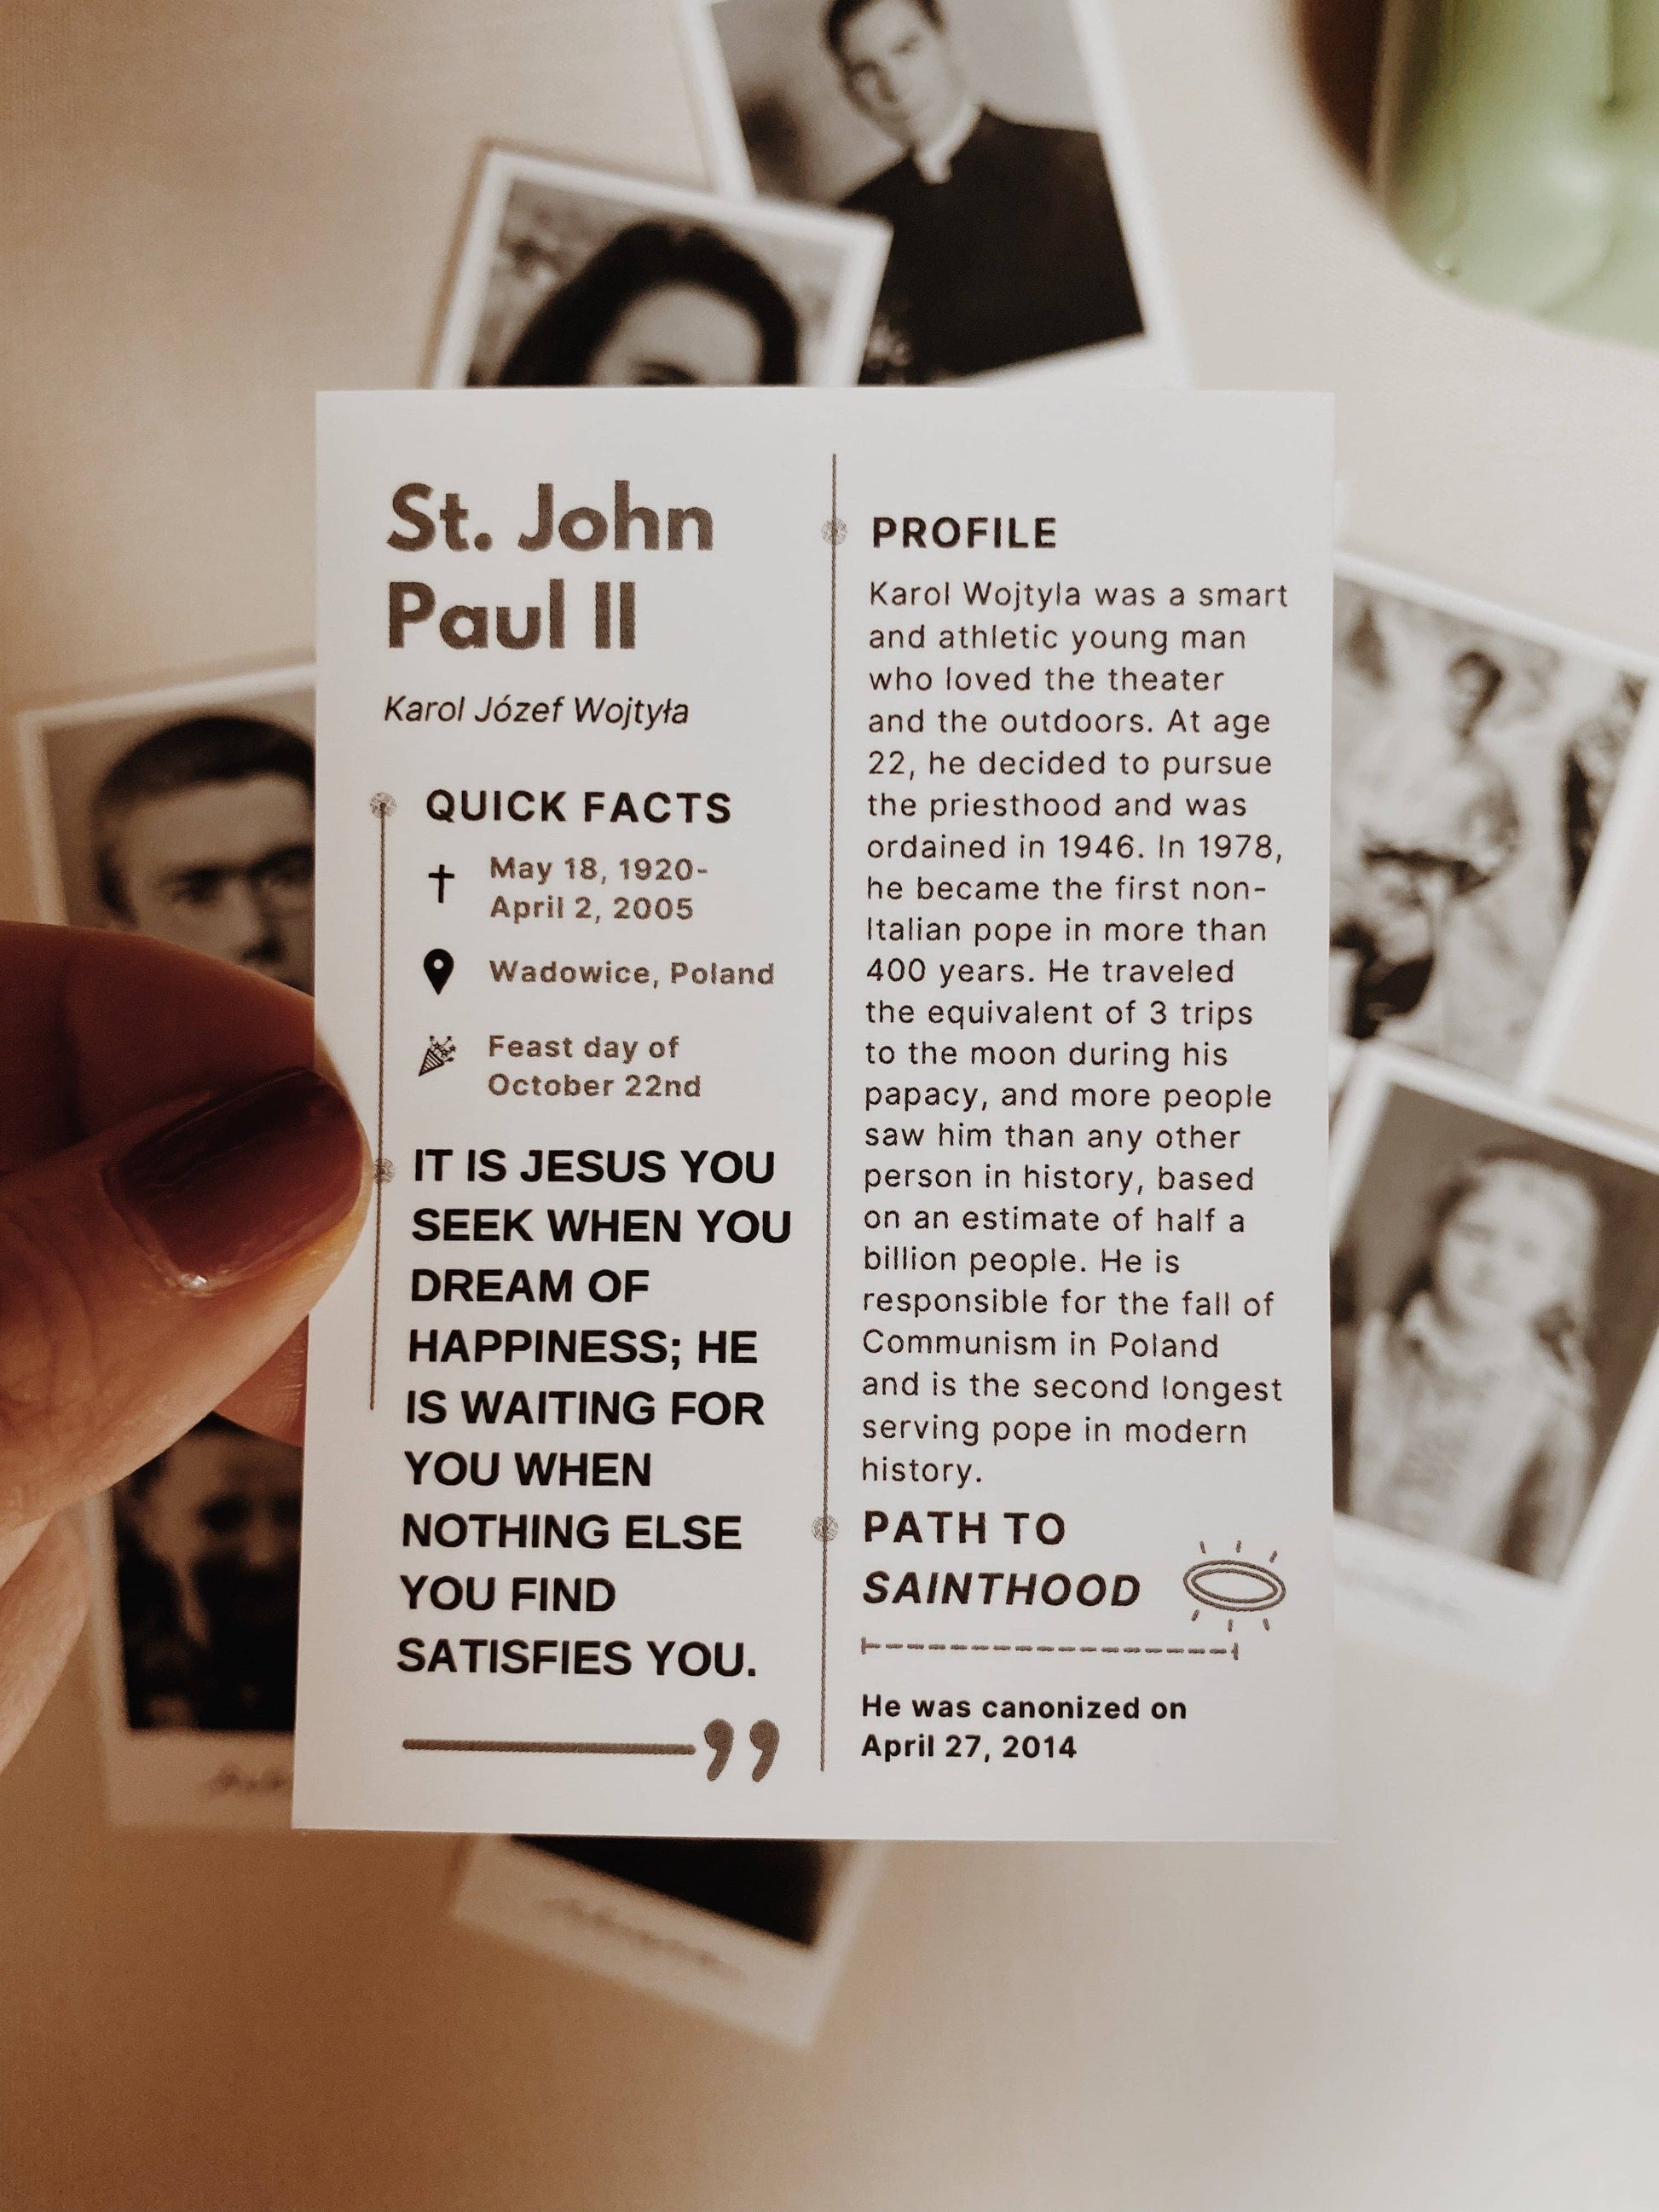 St. John
Paul II
Karol Józef Wojtyła
QUICK FACTS
May 18, 1920-
April 2, 2005
Wadowice, Poland
Feast day of
October 22nd
IT IS JESUS YOU
SEEK WHEN YOU
DREAM OF
HAPPINESS; HE
IS WAITING FOR
YOU WHEN
NOTHING ELSE
YOU FIND
SATISFIES YOU.
”
PROFILE
Karol Wojtyla was a smart
and athletic young man
who loved the theater
and the outdoors. At age
22, he decided to pursue
the priesthood and was
ordained in 1946. In 1978,
he became the first non-
Italian pope in more than
400 years. He traveled
the equivalent of 3 trips
to the moon during his
papacy, and more people
saw him than any other
person in history, based
on an estimate of half a
billion people. He is
responsible for the fall of
Communism in Poland
and is the second longest
serving pope in modern
history.
PATH TO
SAINTHOOD
He was canonized on
April 27, 2014